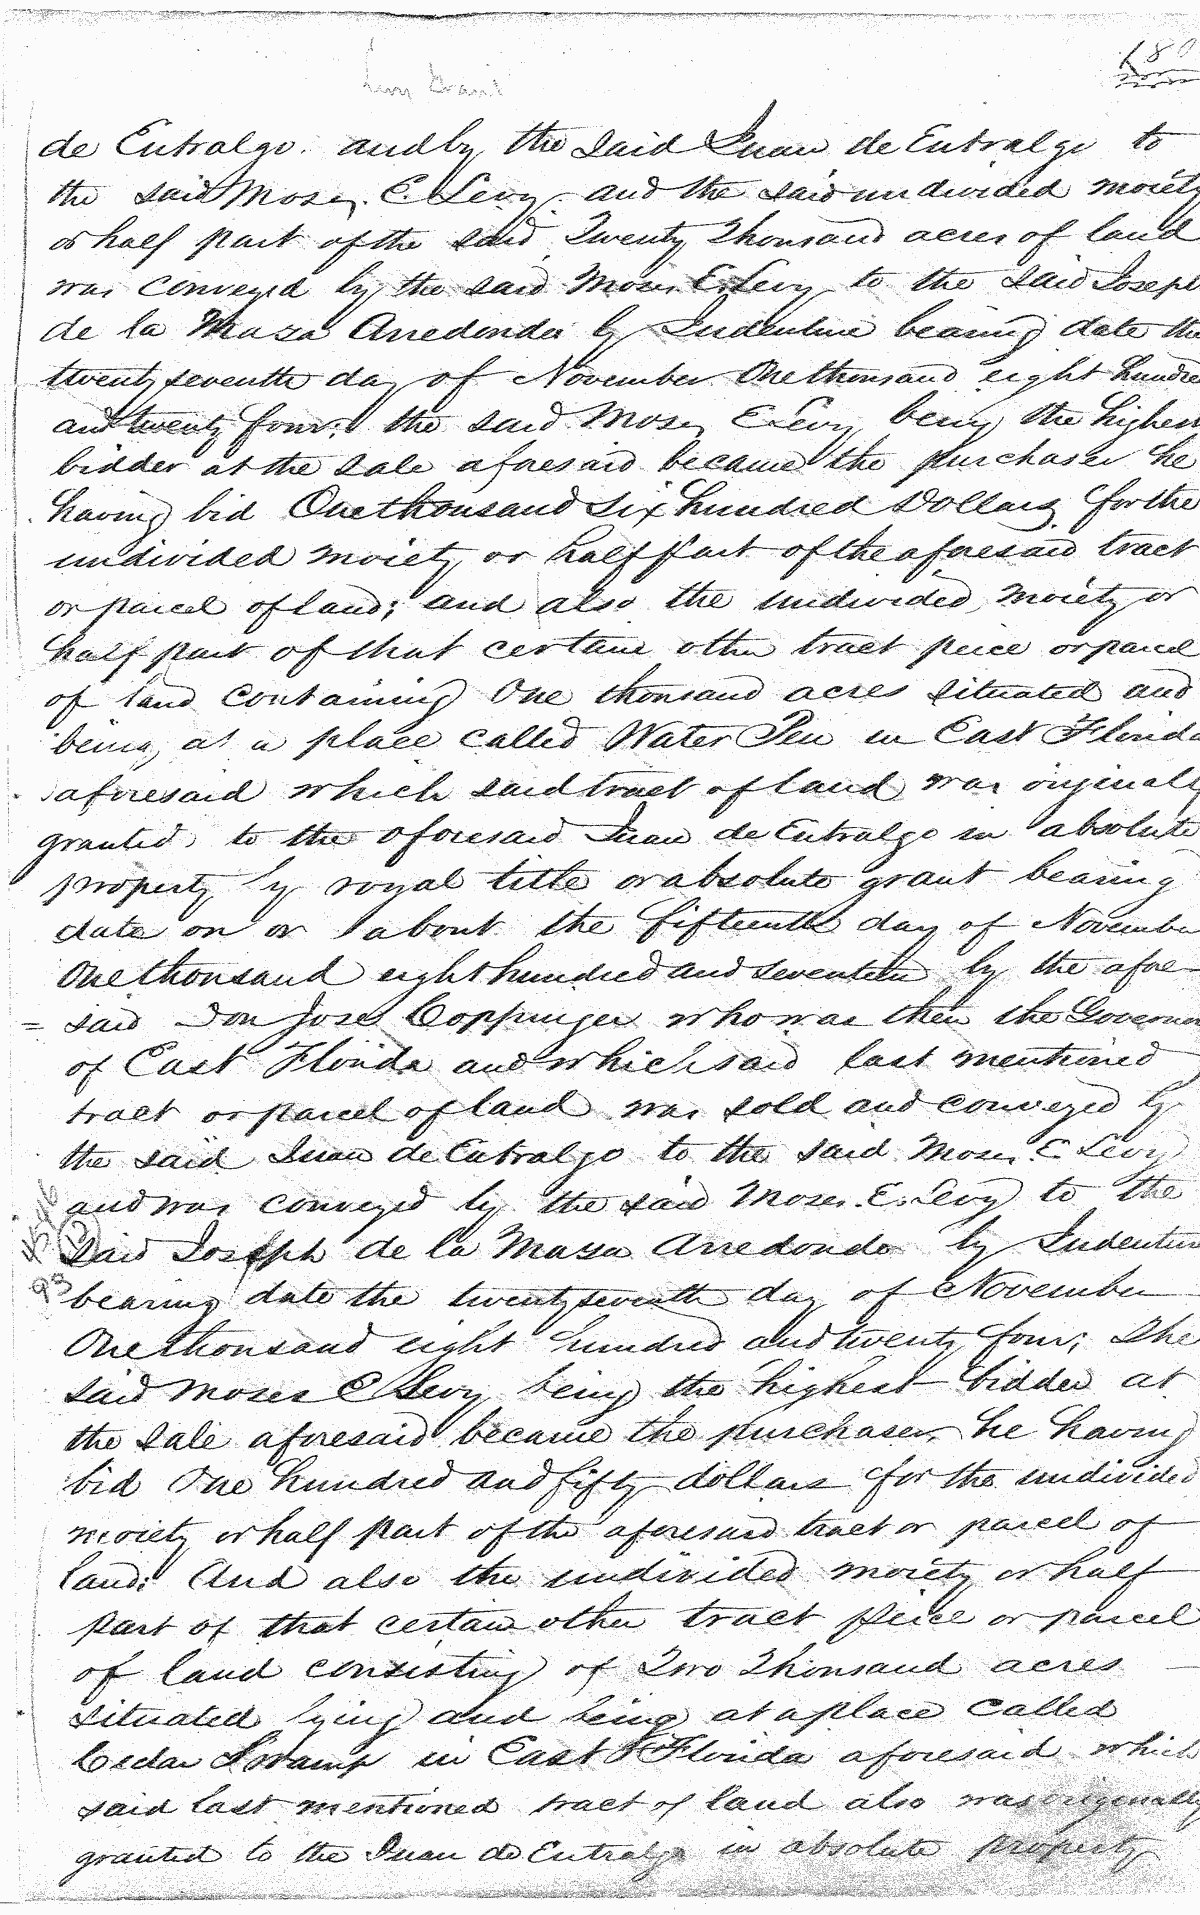 Levy Grant
de Entralgo. and by the said Juan de Entralgo to
the said Moses. E. Levy. and the said undivided moiety
or half part of the said Twenty Thousand acres of land
was conveyed by the said Moses E. Levy to the said Joseph
de la Maza Arredondo by Indenture bearing date the
twenty seventh day of November One thousand eight hundred
and twenty four; the said Moses E Levy being the highest
bidder at the sale aforesaid became the purchaser he
having bid One thousand Six hundred Dollars for the
undivided moiety or half part of the aforesaid tract
or parcel of land; and also the undivided moiety or
half part of that certain other tract peice or parcel
of land containing One thousand acres situated and
being at a place called Water Pen in East Florida
aforesaid which said tract of land was originally
granted to the aforesaid Juan de Entralgo in absolute
property by royal title or absolute grant bearing
date on or about the fifteenth day of November
One thousand eight hundred and seventeen by the afore-
= said Don Jose Coppinger who was then the Governor
of East Florida and which said last mentioned
tract or parcel of land was sold and conveyed by
the said Juan de Entralgo to the said Moses E Levy
and was conveyed by the said Moses. E. Levy to the
said Joseph de la Maza Arredondo by Indenture
bearing date the twenty seventh day of November
One thousand eight hundred and twenty four; The
said Moses E Levy being the highest bidder at
the sale aforesaid became the purchaser he having
bid One hundred and fifty dollars for the undivided
moiety or half part of the aforesaid tract or parcel of
land; And also the undivided moiety or half
part of that certain other tract peice or parcel
of land consisting of Two Thousand acres
situated lying and being at a place called
Cedar Swamp in East Florida aforesaid which
said last mentioned tract of land also was originally
granted to the Juan de Entralgo in absolute property